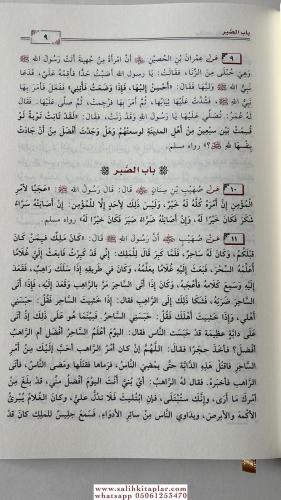 باب الصَّبر
٩
٩ عَنْ عِمْرانَ بْنِ الحُصَيْنِ ﷺ أنَّ امْرَأةً مِنْ جُهينةَ أتَتْ رَسُولَ الله ﷺ
وَهِيَ حُبْلَى مِنَ الزِّنَا، فقَالَتْ: يَا رسولَ الله أصَبْتُ حَدًّا فَأقِمْهُ عَلَيَّ، فَدَعَا
نَبيُّ الله ﷺ وَليَّها فقَالَ: «أَحْسِنْ إِلَيْهَا، فإذا وَضَعَتْ فَأْتِني» فَفَعَلَ فَأمَرَ بهَا
نبيُّ الله ﷺ، فَشُدَّتْ عَلَيْهَا ثِيَابُهَا، ثُمَّ أمَرَ بِهَا فَرُجِمَتْ، ثُمَّ صَلَّى عَلَيْهَا. فقَالَ
لَهُ عُمَرُ: تُصَلِّي عَلَيْهَا يَا رَسُول الله وَقَدْ زَنَتْ؟ قَالَ: «لَقَدْ تَابَتْ تَوْبَةً لَوْ
قُسِمَتْ بَيْنَ سَبْعِينَ مِنْ أهْلِ المَدِينَةِ لَوَسِعَتْهُمْ وَهَلْ وَجَدْتَ أَفضَلَ مِنْ أنْ جَادَتْ
بنفْسِهَا لله ﷻ؟!» رواه مسلم.
باب الصَّبر
١٠ عَنْ صُهَيْبِ بْنِ سِنَانٍ ﷺ قَالَ: قَالَ رَسُولُ الله ﷺ: «عَجَبًا لأمْرِ
المُؤْمنِ إنَّ أمْرَهُ كُلَّهُ لَهُ خَيْرٌ، وَلَيْسَ ذلِكَ لأحَدٍ إلَّا للمُؤْمِنِ: إنْ أَصَابَتْهُ سَرَّاءُ
شَكَرَ فَكَانَ خَيْرًا لَهُ، وَإنْ أصَابَتْهُ ضَرَّاءُ صَبَرَ فَكَانَ خَيْرًا لَهُ» رواه مسلم.
١١ عَنْ صُهَيْبٍ ﷺ أنَّ رَسُولَ الله ﷺ قَالَ: «كَانَ مَلِكٌ فيمَنْ كَانَ
قَبْلَكُمْ، وَكَانَ لَهُ سَاحِرٌ، فَلَمَّا كَبِرَ قَالَ لِلْمَلِكِ: إنِّي قَدْ كَبِرْتُ فَابْعَثْ إلَيَّ غُلَامًا
أُعَلِّمْهُ السِّحْرَ، فَبَعَثَ إِلَيْهِ غُلَامًا يُعَلِّمُهُ، وَكَانَ في طَرِيقِهِ إِذَا سَلَكَ رَاهِبٌ، فَقَعَدَ
إِلَيْهِ وسَمِعَ كَلَامَهُ فَأَعْجَبَهُ، وَكَانَ إِذَا أتَى السَّاحِرَ مَرَّ بالرَّاهبِ وَقَعَدَ إِلَيْهِ، فَإذَا أَتَى
السَّاحِرَ ضَرَبَهُ، فَشَكَا ذلِكَ إِلَى الرَّاهِب، فَقَالَ: إِذَا خَشِيتَ السَّاحِرَ، فَقُلْ: حَبَسَنِي
أَهْلِي، وَإذَا خَشِيتَ أهلَكَ، فَقُلْ: حَبَسَنِي السَّاحِرُ. فَبَيْنَما هُوَ عَلَى ذلِكَ إِذْ أَتَى
عَلَى دَابَّةٍ عَظِيمَةٍ قَدْ حَبَسَتِ النَّاسَ فقَالَ: اليَوْمَ أعْلَمُ السَّاحرُ أفْضَلُ أم الرَّاهبُ
أفْضَلُ؟ فَأخَذَ حَجَرًا فَقَالَ: اللَّهُمَّ إنْ كَانَ أمْرُ الرَّاهِبِ أَحَبَّ إلَيْكَ مِنْ أمْرِ
السَّاحِرِ فَاقْتُلْ هذِهِ الدّابَّةَ حَتَّى يَمْضِيَ النَّاسُ، فَرَمَاها فَقَتَلَها وَمَضَى النَّاسُ، فَأتَى
الرَّاهبَ فَأَخبَرَهُ. فَقَالَ لَهُ الرَّاهبُ: أَيْ بُنَيَّ أَنْتَ اليَومَ أفْضَلُ مِنِّي، قَدْ بَلَغَ مِنْ
أَمْرِكَ مَا أَرَى، وَإنَّكَ سَتُبْتَلَى، فَإن ابْتُلِيتَ فَلَا تَدُلَّ عَلَيَّ، وَكانَ الغُلامُ يُبْرىءُ
الأكْمَهَ وَالأَبْرصَ، ويداوي النَّاسَ مِنْ سَائِرِ الأَدْوَاءِ. فَسَمِعَ جَلِيسٌ لِلملِكِ كَانَ قَدْ
www.salihkitaplar.com
whatsapp 05061253470